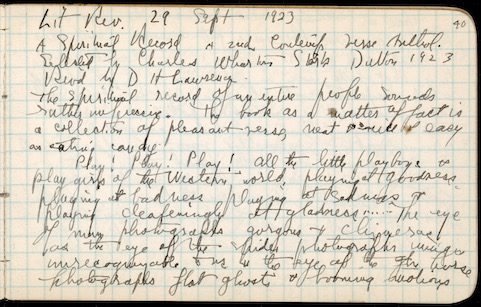 40
Lit Rev. 29 Sept 1923
A Spiritual Record a 2nd Contemp verse
Selected by Charles Wharton Stork Dutton 1923
Revd by D H Lawrence
The spiritual record of an entire people sounds
rather impressive. The book as a matter of fact is
a collection of pleasant verse, neat & easy
as eating candy.
Play! Play! Play! All the little playboys &
play girls of the Western world, playing at goodness
playing at badness playing at sadness &
playing deafeningly at gladness..... The eye
of man photographs gorgons & chimeras
as the eye of the spider photographs images
unrecognizable to us & the eye of the horse
photographs flat ghosts & looming motions